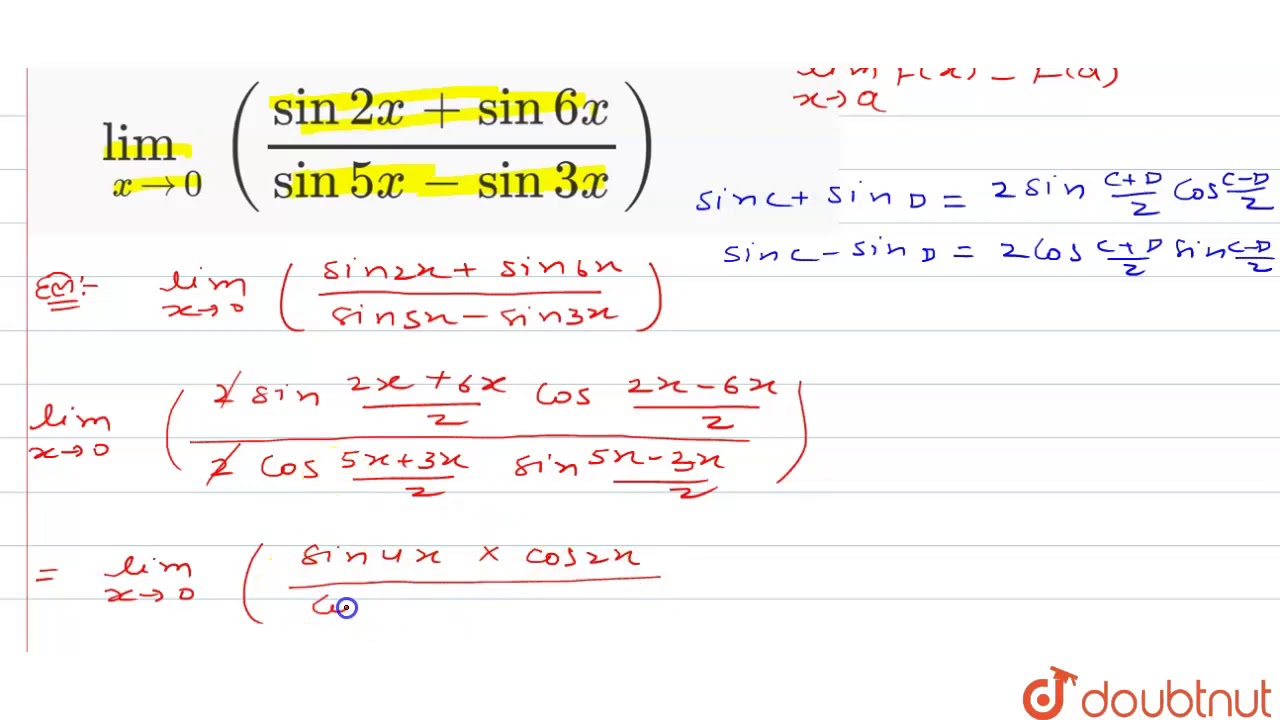 lim x→0 ( sin 2x + sin 6x / sin 5x − sin 3x )
lim f(x) = f(a)
x→a
sin C + sin D = 2 sin C+D/2 cos C−D/2
sin C − sin D = 2 cos C+D/2 sin C−D/2
lim x→0 ( sin2x + sin6x / sin5x − sin3x )
lim x→0 ( 2 sin 2x+6x/2 cos 2x−6x/2 / 2 cos 5x+3x/2 sin 5x−3x/2 )
= lim x→0 ( sin4x × cos2x /
doubtnut